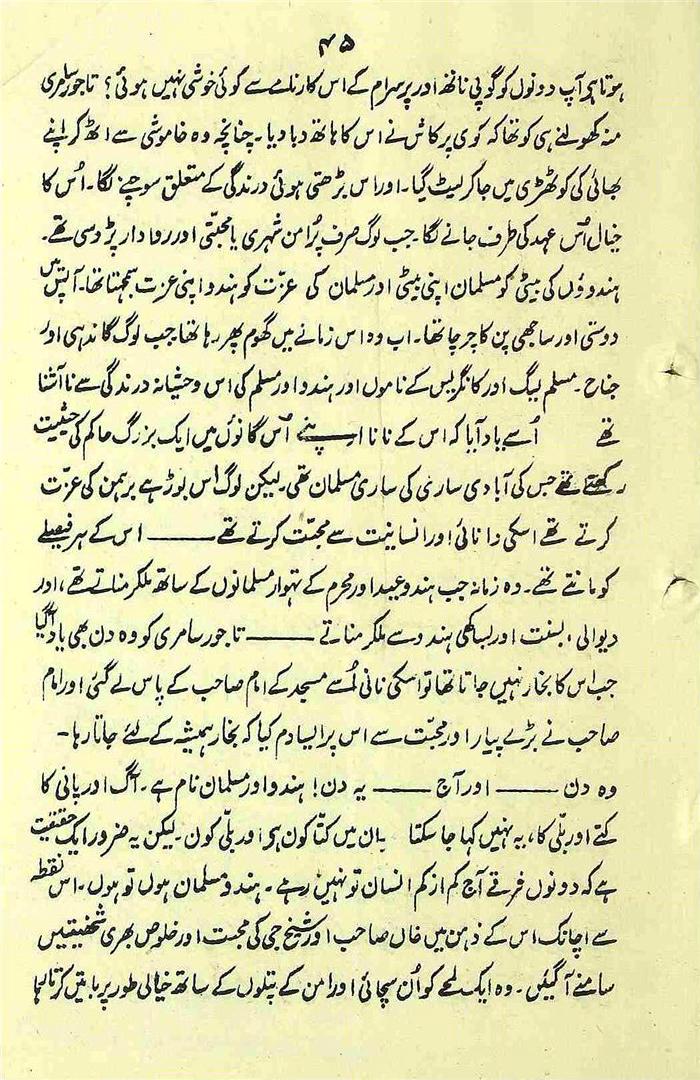 ۴۵
ہوتا ہے آپ دونوں کو گوپی ناتھ اور پرسرام کے اس کارنامے سے کوئی خوشی نہیں ہوئی؟ تاجور سامری
منہ کھولنے ہی کو تھا کہ کوی پرکاش نے اس کا ہاتھ دبا دیا۔ چنانچہ وہ خاموشی سے اٹھ کر اپنے
بھائی کی کوٹھڑی میں جا کر لیٹ گیا۔ اور اس بڑھتی ہوئی درندگی کے متعلق سوچنے لگا۔ اُس کا
خیال اُس عہد کی طرف جانے لگا۔ جب لوگ صرف پُرامن شہری یا محبتی اور روادار پڑوسی تھے۔
ہندوؤں کی بیٹی کو مسلمان اپنی بیٹی اور مسلمان کی عزّت کو ہندو اپنی عزت سمجھتا تھا۔ آپس میں
دوستی اور ساجھی پن کا چرچا تھا۔ اب وہ اس زمانے میں گھوم پھر رہا تھا جب لوگ گاندہی اور
جناح۔ مسلم لیگ اور کانگریس کے ناموں اور ہندو اور مسلم کی اس وحشیانہ درندگی سے ناآشنا
تھے اُسے یاد آیا کہ اس کے نانا اپنے اُس گانوٗں میں ایک بزرگ حاکم کی حیثیت
رکھتے تھے جس کی آبادی ساری کی ساری مسلمان تھی۔ لیکن لوگ اس بوڑھے برہمن کی عزت
کرتے تھے اسکی دانائی اور انسانیت سے محبّت کرتے تھے ——— اس کے ہر فیصلے
کو مانتے تھے۔ وہ زمانہ جب ہندو عید اور محرم کے تہوار مسلمانوں کے ساتھ ملکر مناتے تھے، اور
دیوالی، بسنت اور بساکھی ہندو سے ملکر مناتے ——— تاجور سامری کو وہ دن بھی یاد آگیا
جب اس کا بخار نہیں جاتا تھا تو اسکی نانی اُسے مسجد کے امام صاحب کے پاس لے گئی اور امام
صاحب نے بڑے پیار اور محبّت سے اس پر ایسا دم کیا کہ بخار ہمیشہ کے لئے جاتا رہا۔
وہ دن ——— اور آج ——— یہ دن! ہندو اور مسلمان نام ہے۔ آگ اور پانی کا
کتے اور بلّی کا، یہ نہیں کہا جا سکتا ان میں کتا کون ہو اور بلّی کون۔ لیکن یہ ضرور ایک حقیقت
ہے کہ دونوں فرقے آج کم از کم انسان تو نہیں رہے۔ ہندو مسلمان ہوں تو ہوں۔ اس نقطہ
سے اچانک اس کے ذہن میں خاں صاحب اور شیخ جی کی محبت اور خلوص بھری شخصیتیں
سامنے آ گئیں۔ وہ ایک لمحے کو اُن سچائی اور امن کے پتلوں کے ساتھ خیالی طور پر باتیں کرتا رہا